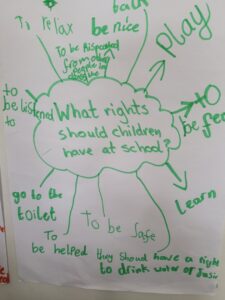 back
To relax
be nice
play
To be Respected
from other
people in
to
be listened
to
What rights
should children
have at school?
to
be fed
go to the
toilet
Learn
To be safe
To
be helped
they should have a right
to drink water or